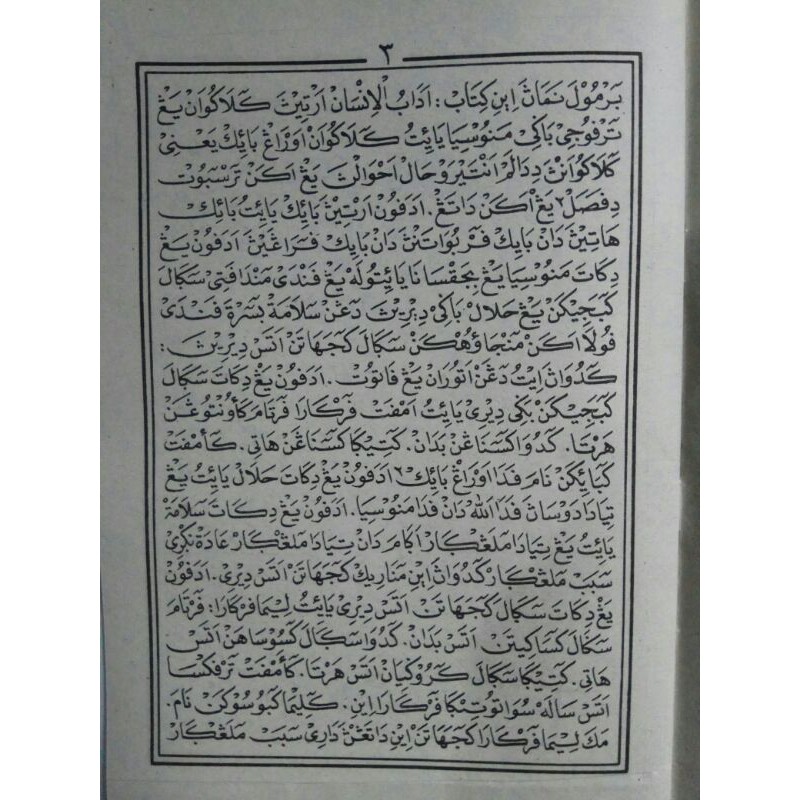 ٣
برمول نماڽ اين كتاب : اداب الإنسان ارتيڽ كلاكوان يڠ
ترفوجي باݢي منوسيا يائيت كلاكوان اورڠ بائيك يعني
كلاكوانڽ ددالم انتير وحال احوالڽ يڠ اكن ترسبوت
دفصل٢ يڠ اكن داتڠ. ادفون ارتيڽ بائيك يائيت بائيك
هاتيڽ دان بايك فربواتنڽ دان بايك فراڠيڽ ادفون يڠ
دكات منوسيا يڠ بجقسانا يائيتوله يڠ فندي مندافتي سݢال
كبجيكن يڠ حلال باݢي ديريڽ دڠن سلامة بسرة فندي
فولا اكن منجاؤهكن سݢال كجهاتن اتس ديريڽ :
كدواڽ ايت دڠن اتوران يڠ فاتوت. ادفون يڠ دكات سݢال
كبجيكن بݢي ديري يائيت امفت فركارا فرتام كأونتوڠن
هرتا. كدوا كسناڠن بدان. كتيݢا كسناڠن هاتي. كأمفت
كبائيكن نام فدا اورڠ بائيك٢ ادفون يڠ دكات حلال يائيت يڠ
تياد دوساڽ فدا الله دان فدا منوسيا. ادفون يڠ دكات سلامة
يائيت يڠ تياد ملڠݢار اݢام دان تياد ملڠݢار عادة نݢري
سبب ملڠݢار كدواڽ اين مناريك كجهاتن اتس ديري. ادفون
يڠ دكات سݢال كجهاتن اتس ديري يائيت ليما فركارا: فرتام
سݢال كساكيتن اتس بدان. كدوا سݢال كسوساهن اتس
هاتي. كتيݢا سݢال كروݢيان اتس هرتا. كأمفت ترفكسا
اتس ساله سواتو تيݢا فركارا اين. كليما كبوسوكن نام.
مك ليما فركارا كجهاتن اين داتڠڽ داري سبب ملڠݢار